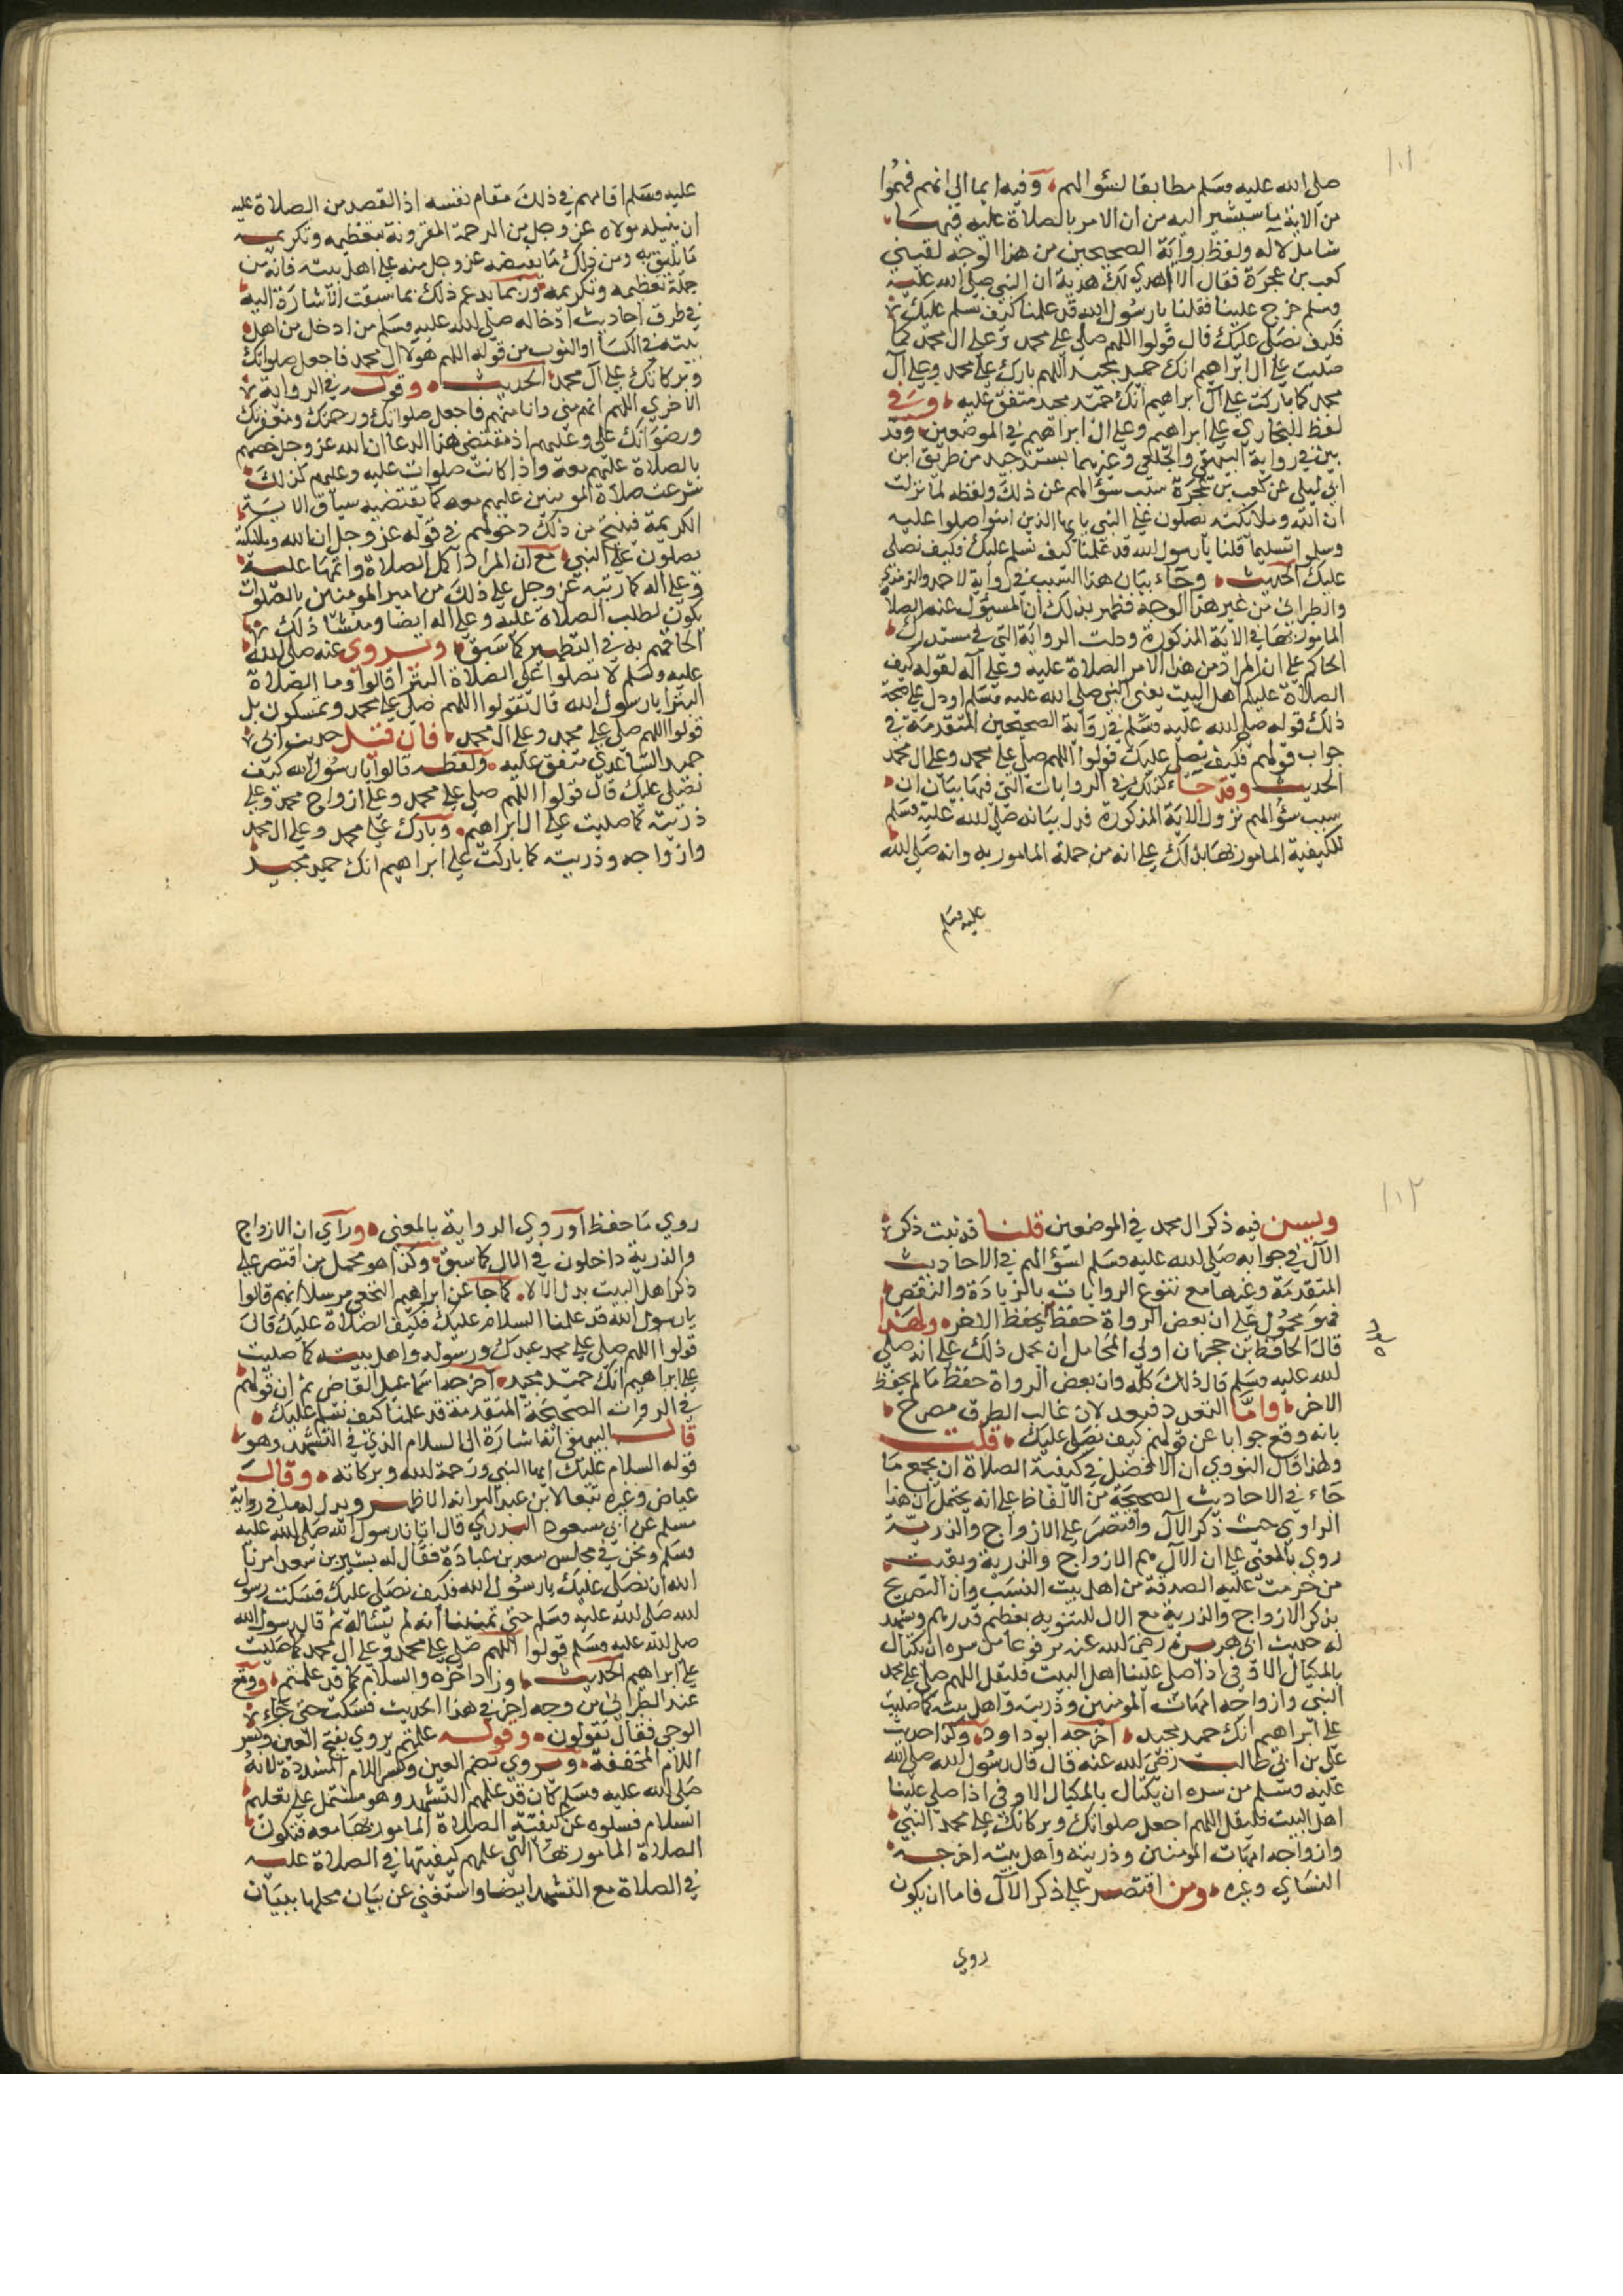 ١٠١
صلى الله عليه وسلم مطابقا لسؤالهم وفيه ايما الى انهم فهموا
من الاية ما سيشير اليه من ان الامر بالصلاة عليه فيها
شامل لاله ولفظ رواية الصحيحين من هذا الوجه لقيني
كعب بن عجرة فقال الا اهدي لك هدية ان النبي صلى الله عليه
وسلم خرج علينا فقلنا يا رسول الله قد علمنا كيف نسلم عليك
فكيف نصلى عليك قال قولوا اللهم صلى على محمد وعلى ال محمد كما
صليت على ال ابراهيم انك حميد مجيد اللهم بارك على محمد وعلى آل
محمد كما باركت على آل ابراهيم انك حميد مجيد متفق عليه وفي
لفظ للبخاري على ابراهيم وعلى ال ابراهيم في الموضعين وقد
بين في رواية البيهقي والخلعي وغيرهما بسند جيد من طريق ابن
ابي ليلى عن كعب بن عجرة سبب سؤالهم عن ذلك ولفظه لما نزلت
ان الله وملائكته يصلون على النبي يا يها الذين امنوا صلوا عليه
وسلموا تسليما قلنا يا رسول الله قد علمنا كيف نسلم عليك فكيف نصلى
عليك الحديث وجاء بيان هذا السبب في رواية لاحمد والترمذي
والطبراني من غير هذا الوجه فظهر بذلك ان المسئول عنه الصلاة
المامور بها في الاية المذكورة ودلت الرواية التي في مستدرك
الحاكم على ان المراد من هذا الامر الصلاة عليه وعلى آله لقوله كيف
الصلاة عليكم اهل البيت يعني النبي صلى الله عليه وسلم او دل على صحة
ذلك قوله صلى الله عليه وسلم في رواية الصحيحين المتقدمة في
جواب قولهم فكيف نصلى عليك قولوا اللهم صل على محمد وعلى ال محمد
الحديث وقد جاء كذلك في الروايات التي فيها بيان ان
سبب سؤالهم نزول الاية المذكورة فدل بيانه صلى الله عليه وسلم
للكيفية المامور بها بذلك على انه من جملة المامور به وانه صلى الله
عليه وسلم
عليه وسلم اقامهم في ذلك مقام نفسه اذ القصد من الصلاة عليه
ان ينيله مولاه عز وجل من الرحمة المقرونة بتعظيمه وتكريمه
ما يليق به ومن ذلك ما يفيضه عز وجل منه على اهل بيته فانه من
جملة تعظيمه وتكريمه ومما يدعم ذلك مما سبقت الاشارة اليه
في طرق احاديث ادخاله صلى الله عليه وسلم من ادخل من اهل
بيته في الكسا او الثوب من قوله اللهم هولا ال محمد فاجعل صلواتك
وبركاتك على آل محمد الحديث وقوله في الرواية
الاخرى اللهم انهم مني وانا منهم فاجعل صلواتك ورحمتك ومغفرتك
ورضوانك على وعليهم اذ مقتضى هذا الدعا ان الله عز وجل خصهم
بالصلاة عليهم معه واذا كانت صلوات عليه وعليهم كذلك
شرعت صلاة المومنين عليهم معه كما يقتضيه سياق الاية
الكريمة فينتج من ذلك دخولهم في قوله عز وجل ان الله وملائكته
يصلون على النبي مع ان المراد اكمل الصلاة واتمها عليه
وعلى اله كما رتبه عز وجل على ذلك من امر المومنين بالصلوات
يكون لطلب الصلاة عليه وعلى اله ايضا ومنشا ذلك
الحاقهم به في التطهير كما سبق ويروى عنه صلى الله
عليه وسلم لا تصلوا على الصلاة البترا قالوا وما الصلاة
البترا يا رسول الله قال تقولوا اللهم صلى على محمد وتمسكون بل
قولوا اللهم صلى على محمد وعلى ال محمد فان قيل حديث ابي
حميد الساعدي متفق عليه ولفظه قالوا يا رسول الله كيف
نصلى عليك قال قولوا اللهم صلى على محمد وعلى ازواج محمد وعلى
ذريته كما صليت على ال ابراهيم وبارك على محمد وعلى ال محمد
وازواجه وذريته كما باركت على ابراهيم انك حميد مجيد
١٠٢
وليس فيه ذكر ال محمد في الموضعين قلنا قد ثبت ذكر
الآل في جوابه صلى الله عليه وسلم لسؤالهم في الاحاديث
المتقدمة وغيرها مع تنوع الروايات بالزيادة والنقص
فهو محمول على ان بعض الرواة حفظ ما لم يحفظ الاخر ولهذا
قال الحافظ بن حجر ان اولى المحامل ان يحمل ذلك على انه صلى
الله عليه وسلم قال ذلك كله وان بعض الرواة حفظ ما لم يحفظ
الاخر واما التعدد فبعيد لان غالب الطرق مصرح
بانه وقع جوابا عن قولهم كيف نصلى عليك قلت
ولهذا قال النووي ان الافضل في كيفية الصلاة ان يجمع ما
جاء في الاحاديث الصحيحة من الالفاظ على انه يحتمل ان هذا
الراوي حيث ذكر الآل واقتصر على الازواج والذرية
روي بالمعنى على ان الآل هم الازواج والذرية وبقية
من حرمت عليه الصدقة من اهل بيت النسب وان التصريح
بذكر الازواج والذرية مع الال للتنويه بعظيم قدرهم ويشهد
له حديث ابي هريرة رضى الله عنه مرفوعا من سره ان يكتال
بالمكيال الاوفى اذا صلى علينا اهل البيت فليقل اللهم صل على محمد
النبي وازواجه امهات المومنين وذريته واهل بيته كما صليت
على ابراهيم انك حميد مجيد اخرجه ابو داود وكذا حديث
على بن ابي طالب رضى الله عنه قال قال رسول الله صلى الله
عليه وسلم من سره ان يكتال بالمكيال الاوفى اذا صلى علينا
اهل البيت فليقل اللهم اجعل صلواتك وبركاتك على محمد النبي
وازواجه امهات المومنين وذريته واهل بيته اخرجه
النساي وغيره ومن اقتصر على ذكر الآل فاما ان يكون
روى
روي ما حفظ او روي الرواية بالمعنى وراي ان الازواج
والذرية داخلون في الال كما سبق وكذا هو محمل من اقتصر على
ذكر اهل البيت بدل الال كما جا عن ابراهيم النخعي مرسلا انهم قالوا
يا رسول الله قد علمنا السلام عليك فكيف الصلاة عليك قال
قولوا اللهم صلى على محمد عبدك ورسوله واهل بيته كما صليت
على ابراهيم انك حميد مجيد اخرجه اسماعيل القاضي ثم ان قولهم
في الروات الصحيحة المتقدمة قد علمنا كيف نسلم عليك
قال البيهقي انها اشارة الى السلام الذي في التشهد وهو
قوله السلام عليك ايها النبي ورحمة الله وبركاته وقال
عياض وغيره تبعا لابن عبد البر انه الاظهر ويدل له ما في رواية
مسلم عن ابي مسعود البدري قال اتانا رسول الله صلى الله عليه
وسلم ونحن في مجلس سعد بن عبادة فقال له بشير بن سعد امرنا
الله ان نصلى عليك يا رسول الله فكيف نصلى عليك فسكت رسول
الله صلى الله عليه وسلم حتى تمنينا انه لم يسأله ثم قال رسول الله
صلى الله عليه وسلم قولوا اللهم صلى على محمد وعلى ال محمد كما صليت
على ابراهيم الحديث وزاد اخره والسلام كما قد علمتم ووقع
عند الطبراني من وجه اخر في هذا الحديث فسكت حتى جاء
الوحي فقال تقولون وقوله علمتم يروي بفتح العين وكسر
اللام المخففة ويروي بضم العين وكسر اللام المشددة لانه
صلى الله عليه وسلم كان قد علمهم التشهد وهو مشتمل على تعليم
السلام فسلوه عن كيفية الصلاة المامور بها معه فتكون
الصلاة المامور بها التي علمهم كيفيتها في الصلاة عليه
في الصلاة مع التشهد ايضا واستغنى عن بيان محلها ببيان